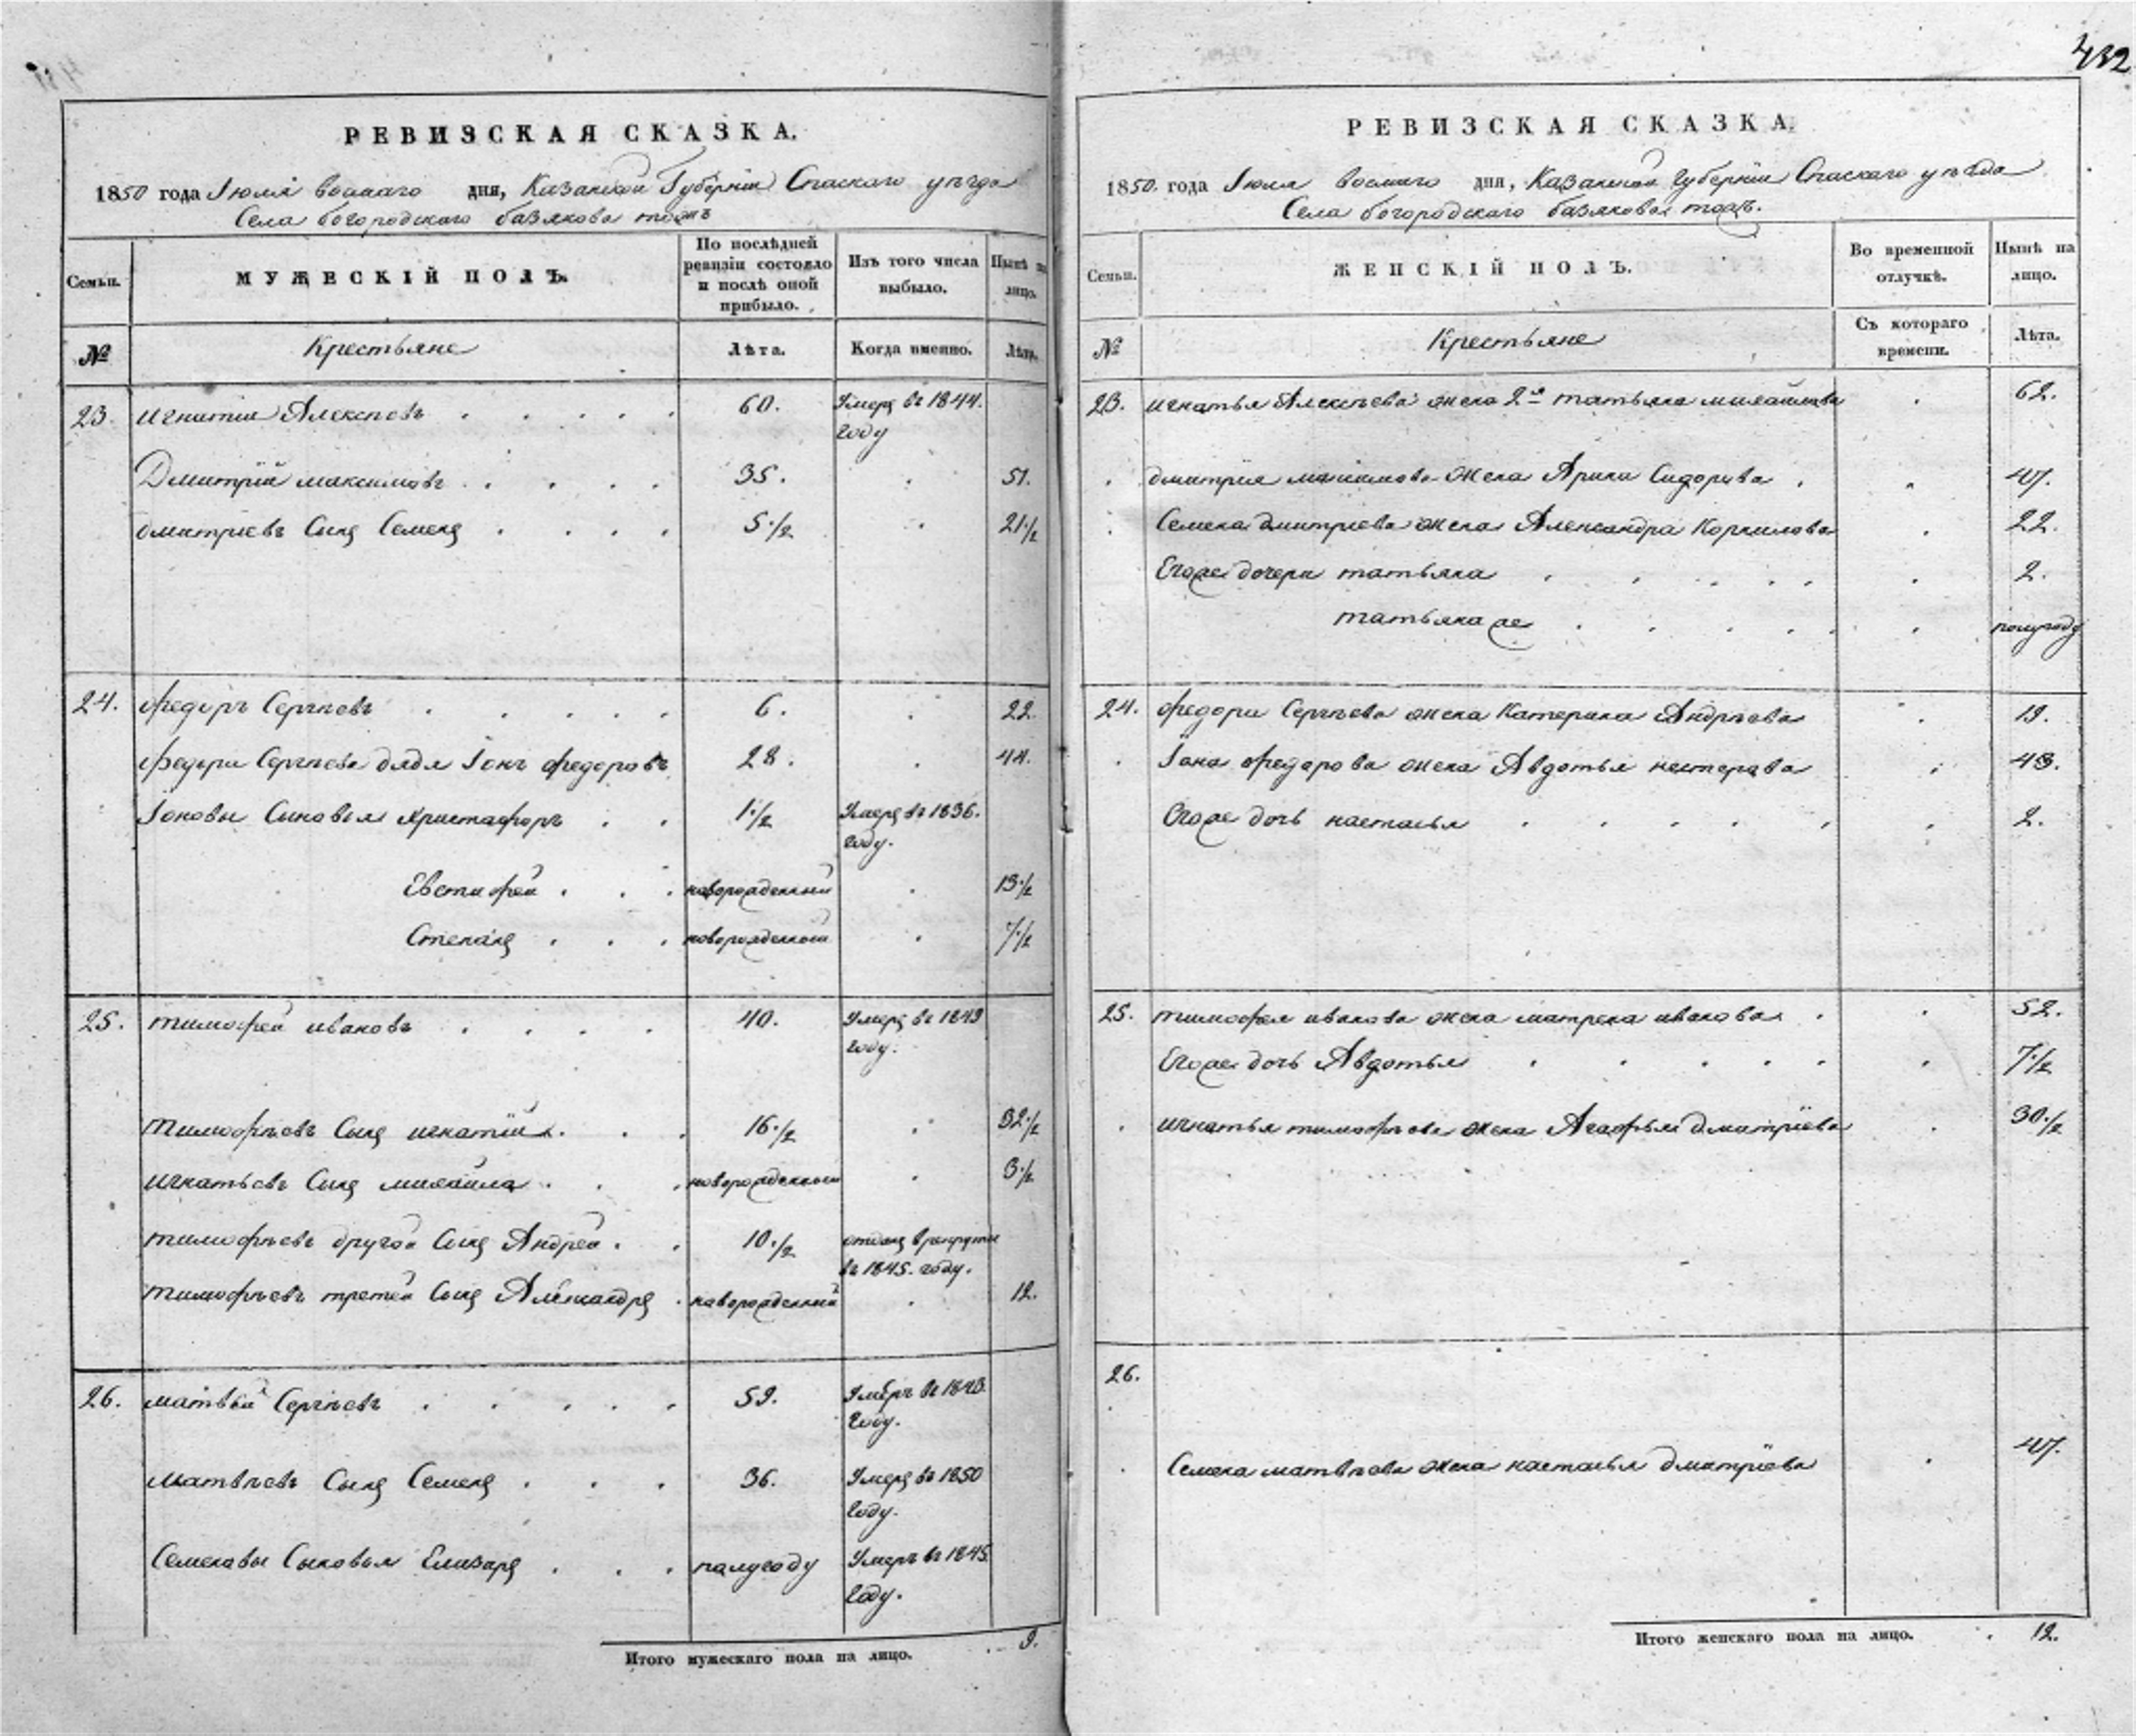 432
РЕВИЗСКАЯ СКАЗКА.
1850 года Іюля восмаго дня, Казанской Губерніи Спаскаго уѣзда
Села богородскаго базякова тожъ
Семьи.
МУЖЕСКІЙ ПОЛЪ.
По послѣдней ревизіи состояло и послѣ оной прибыло.
Изъ того числа выбыло.
Нынѣ на лицо.
№
Крестьяне
Лѣта.
Когда именно.
Лѣта.
23. игнатій Алексѣевъ 60. Умеръ въ 1844.
году
Дмитрій максимовъ 35. 51.
дмитріевъ Сынъ Семенъ 5 1/2 21 1/2
24. федоръ Сергѣевъ 6. 22.
федора Сергѣева дядя Іонъ федоровъ 28. 44.
Іоновы Сыновья христафоръ 1 1/2 Умеръ въ 1836.
году.
Евстифей новорожденный 13 1/2
Степанъ новорожденной 7 1/2
25. тимофей ивановъ 40. Умеръ въ 1849
году.
тимофѣевъ Сынъ игнатій 16 1/2 32 1/2
игнатьевъ Сынъ михайла новорожденный 3 1/2
тимофѣевъ другой Сынъ Андрей 10 1/2 отданъ в рекруты
въ 1845. году.
тимофѣевъ третей Сынъ Александръ новорожденный 12.
26. матвѣй Сергѣевъ 59. Умеръ въ 1843.
году.
матвѣевъ Сынъ Семенъ 36. Умеръ въ 1850
году.
Семеновы Сыновья Елизаръ полугоду Умеръ въ 1845.
году.
Итого мужескаго пола на лицо. 9.
РЕВИЗСКАЯ СКАЗКА.
1850. года Іюля восмаго дня, Казанской Губерніи Спаскаго уѣзда
Села богородскаго базякова тожъ.
Семьи.
ЖЕНСКІЙ ПОЛЪ.
Во временной отлучкѣ.
Нынѣ на лицо.
№
Крестьяне
Съ котораго времени.
Лѣта.
23. игнатья Алексѣева жена 2я татьяна михайлова 62.
дмитрия максимова жена Арина Сидорова 47.
Семена дмитриева жена Александра Корнилова 22.
Егоже дочери татьяна 2.
татьяна же полугоду
24. федора Сергѣева жена Катерина Андрѣева 19.
Іона федорова жена Авдотья нестерова 43.
Егоже дочь настасья 2.
25. тимофея иванова жена матрена иванова 52.
Егоже дочь Авдотья 7 1/2
игнатья тимофѣева жена Агафья дмитріева 30 1/2
26.
Семена матвѣева жена настасья дмитріева 47.
Итого женскаго пола на лицо. 12.